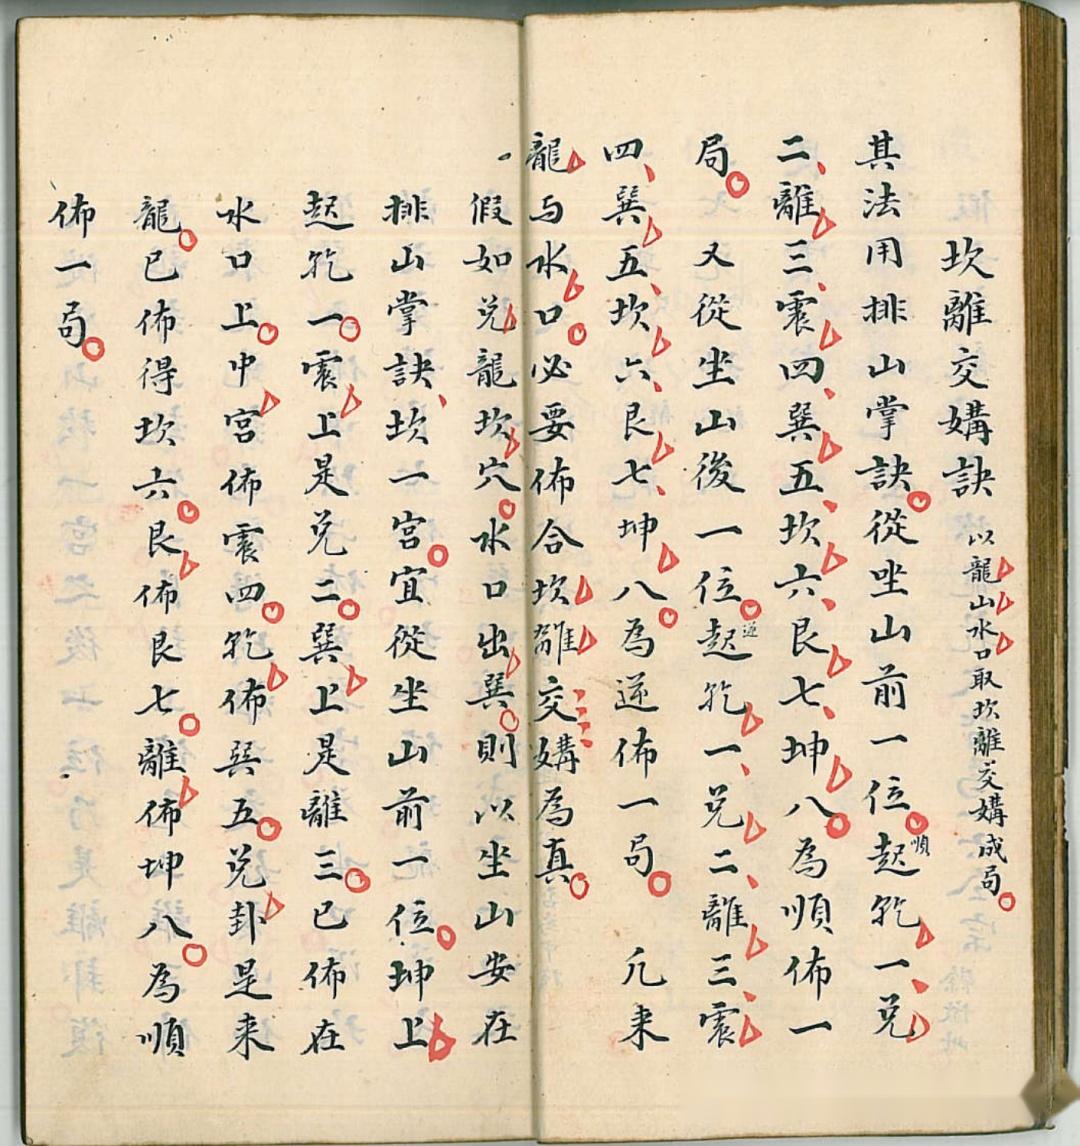 坎離交媾訣 以龍山水口取坎離交媾成局
其法用排山掌訣從坐山前一位起順乾一兌
二離三震四巽五坎六艮七坤八為順佈一
局 又從坐山後一位起逆乾一兌二離三震
四巽五坎六艮七坤八為逆佈一局 凢来
龍与水口必要佈合坎離交媾為真
假如兌龍坎穴水口出巽則以坐山安在
排山掌訣坎一宮宜從坐山前一位坤上
起乾一震上是兌二巽上是離三已佈在
水口上中宮佈震四乾佈巽五兌卦是来
龍已佈得坎六艮佈艮七離佈坤八為順
佈一局